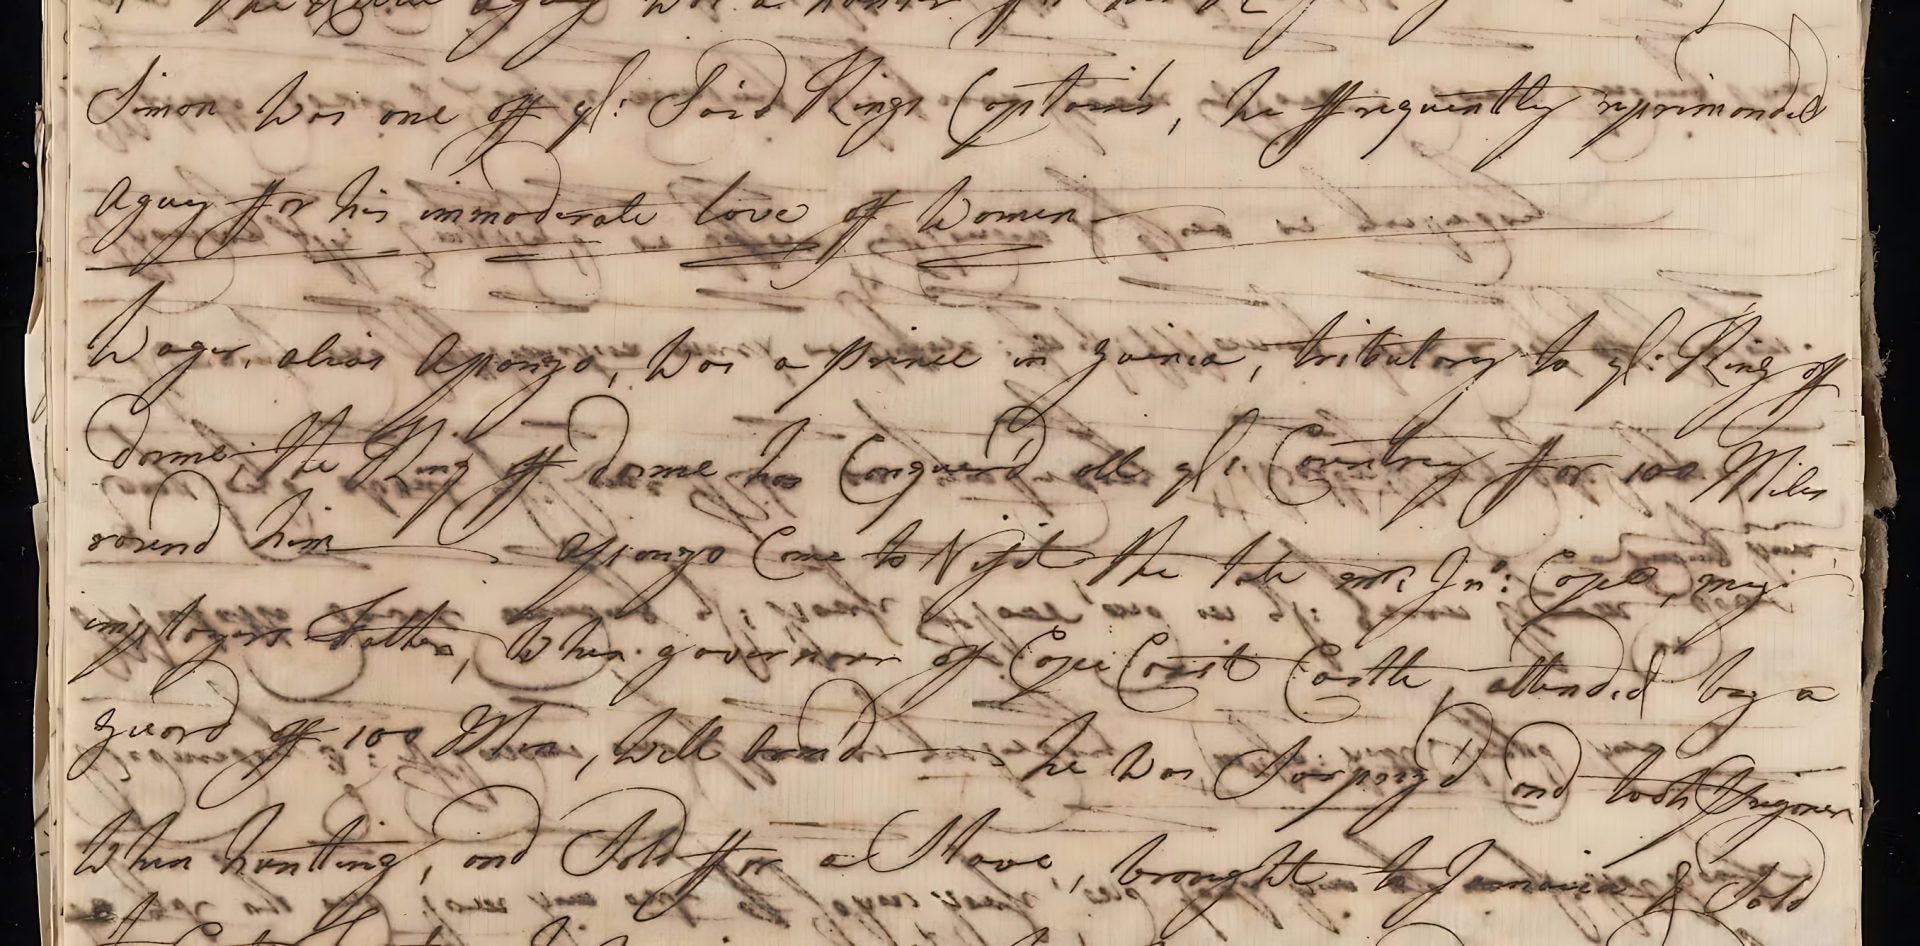 Simon Was one off ye: Said Kings Captains, he ffrequently reprimonded
Aguy ffor his immoderate love off Women
Wager, alias Apongo, Was a prince in guinea, tributary to ye: King off
dome, the King off dome has Conquer'd all ye: Country ffor 100 Miles
round him Apongo Came to Visit the late mr: Jno: Cope, my
employers Father, When governour off Cape Coast Castle, attended by a
guard off 100 Men, Well arm'd he Was Surpriz'd and took Prizoner
When hunting, and Sold ffor a Slave, brought to Jamaica & Sold